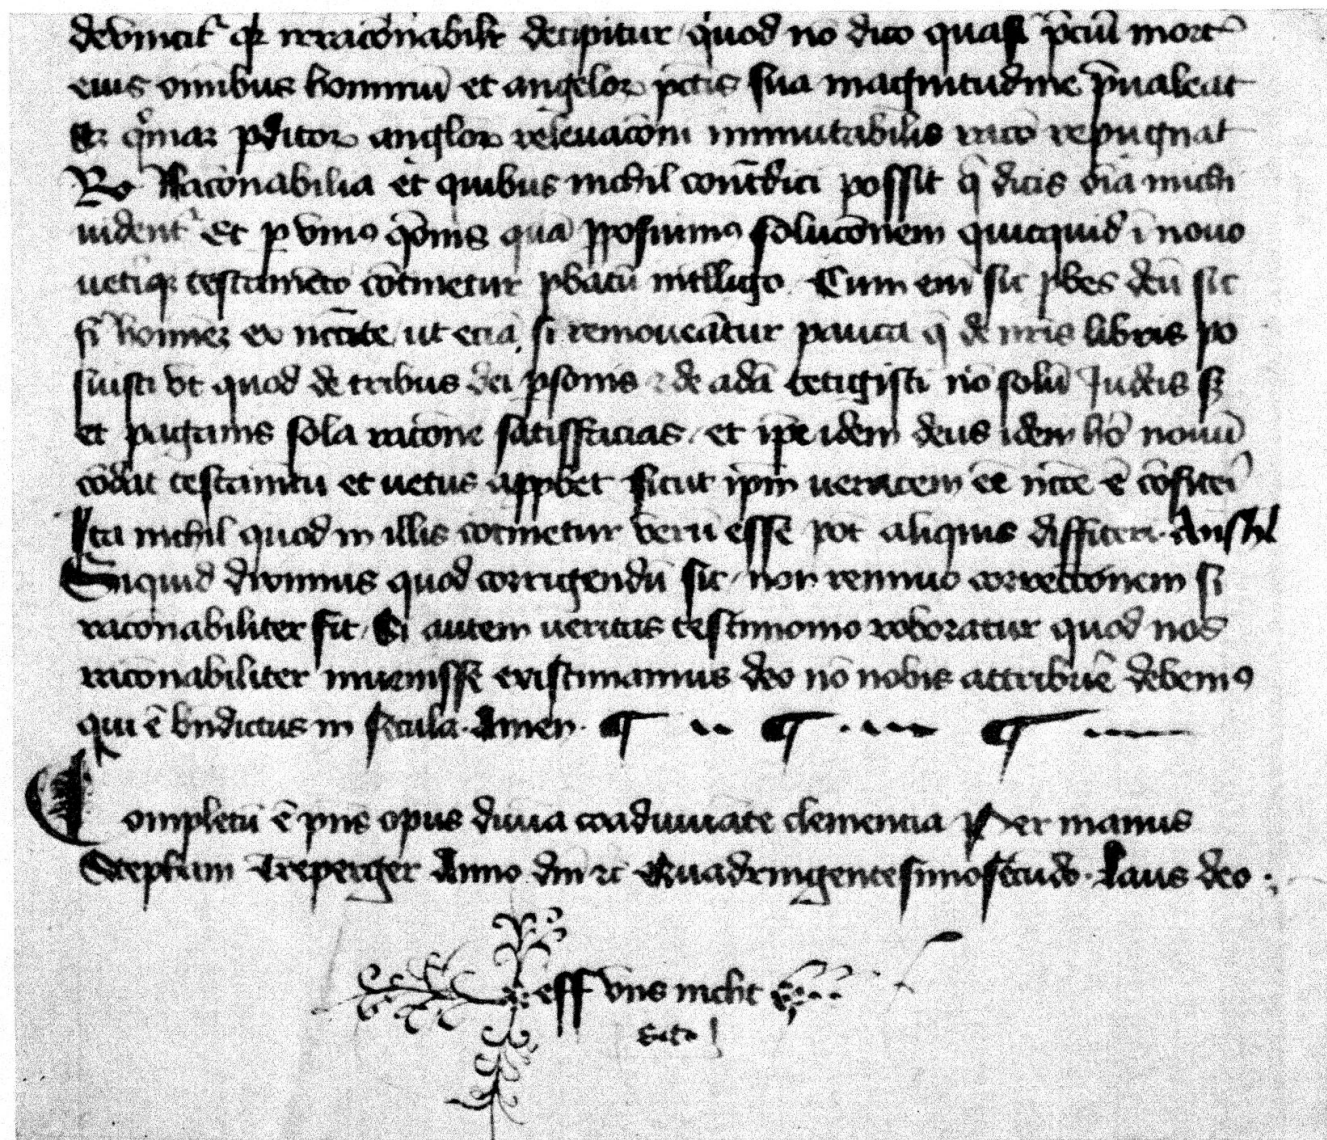 devincit̉ qr irrac̄onabilit̉ decipitur / quod nō dico quasi p̄ciū mort̄
eius omnibus hominū et angeloꝝ pctis̄ sua magnitudine p̄ualeat
Et qͦmaꝝ pditoꝝ angloꝝ releuac̄oni inmutabilis rac̄o repugnat
Rͦ Rac̄onabilia et quibus nichil cont̄dici possit q̄ dicis oīa michi
uident̉ Et ꝑ vniꝰ qōnis quā ꝓposuimꝰ soluc̄onem quicquid ī nouo
uet̉iqꝫ testamēto cōtinetur ꝓbatū intelligo . Cum eni᷑ sic ꝓbes deū sic
fi᷑ hominē ex nc̄citate / ut eciā si remoueātur pauca q̄ de nr̄is libris po
suisti vt quod de tribus dei ꝑsonis ⁊ de adā tetigisti nō solū Iudeis sꝫ
et paganis sola rac̄one satisffacias / et ip̄e idem deus idem hō nouū
cōdat testamn̄tū et uetus apꝓbet sicut ip̄m ueracem ēē nc̄ce ē cōfiteri᷑
Ita nichil quod in illis cōtinetur verū esse pōt aliquis diffiteri · Anshl
Siquid diximus quod corrigendū sit / non rennuo correcc̄onem si
rac̄onabiliter fit / Si autem ueritatis testimonio roboratur quod nos
rac̄onabiliter inuenisse existimamus deo nō nobis attribuē᷑ debemꝰ
qui ē bn̄dictus in secula · Amen ·
Completū ē pn̄s opus diuīa coadiuuāte clemencia Per manus
Stephani Treperger Anno dn̄i ⁊c̄ Quadringentesimosecūdo · Laus deo ·
eff vns nicht